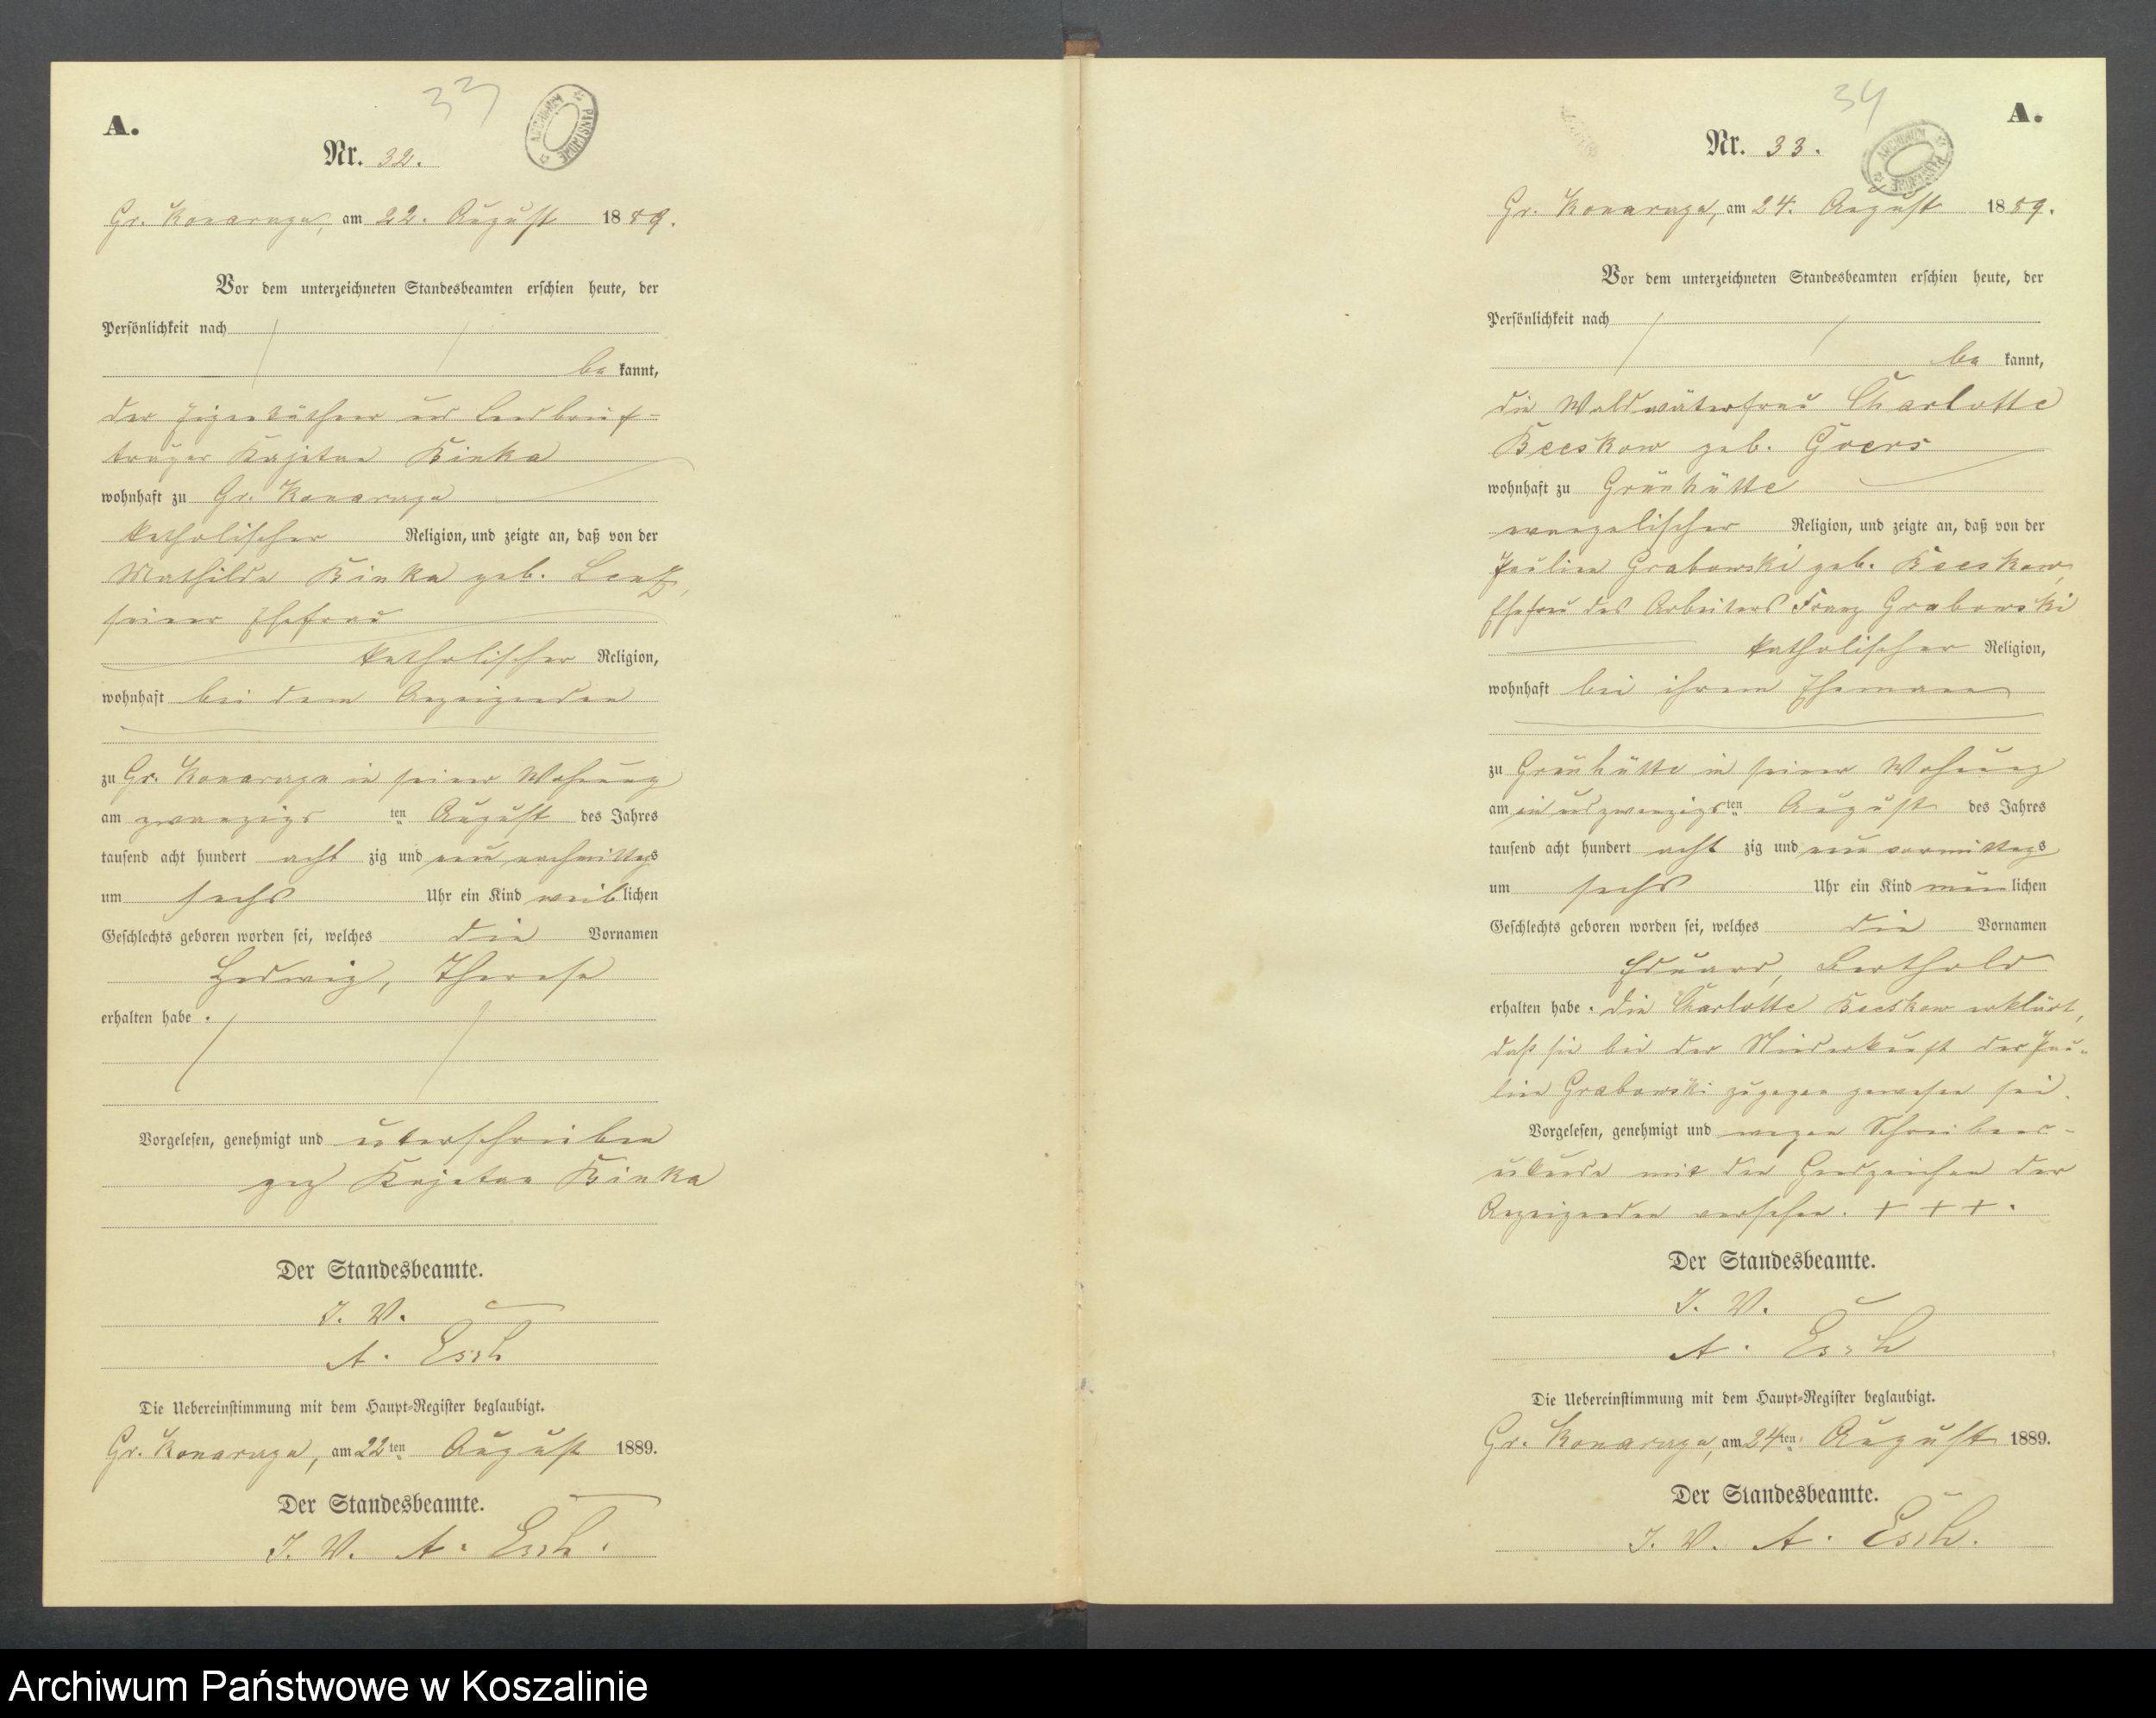 33
A.
Nr. 32.
ARCHIWUM PAŃSTWOWE
Gr. Konarzyn, am 22. August 1889.
Vor dem unterzeichneten Standesbeamten erschien heute, der
Persönlichkeit nach
be kannt,
der Eigenkäthner und Landbrief-
träger Kajetan Kinka
wohnhaft zu Gr. Konarzyn
katholischer Religion, und zeigte an, daß von der
Mathilde Kinka geb. Lentz,
seiner Ehefrau
katholischer Religion,
wohnhaft bei dem Anzeigenden
zu Gr. Konarzyn in seiner Wohnung
am zwanzigs ten August des Jahres
tausend acht hundert acht zig und neun nachmittags
um sechs Uhr ein Kind weiblichen
Geschlechts geboren worden sei, welches die Vornamen
Hedwig, Therese
erhalten habe.
Vorgelesen, genehmigt und unterschrieben
gez Kajetan Kinka
Der Standesbeamte.
I. V.
A. Esch
Die Uebereinstimmung mit dem Haupt-Register beglaubigt.
Gr. Konarzyn, am 22ten August 1889.
Der Standesbeamte.
I. V. A. Esch.
34
A.
Nr. 33.
ARCHIWUM PAŃSTWOWE
Gr. Konarzyn, am 24. August 1889.
Vor dem unterzeichneten Standesbeamten erschien heute, der
Persönlichkeit nach
be kannt,
die Waldwärterfrau Charlotte
Beeskow geb. Goers
wohnhaft zu Grünhütte
evangelischer Religion, und zeigte an, daß von der
Pauline Grabowski geb. Beeskow,
Ehefrau des Arbeiters Franz Grabowski
katholischer Religion,
wohnhaft bei ihrem Ehemann
zu Grünhütte in seiner Wohnung
am ein und zwanzigsten August des Jahres
tausend acht hundert acht zig und neun vormittags
um sechs Uhr ein Kind männlichen
Geschlechts geboren worden sei, welches die Vornamen
Eduard, Berthold
erhalten habe. Die Charlotte Beeskow erklärt,
daß sie bei der Niederkunft der Pau-
line Grabowski zugegen gewesen sei.
Vorgelesen, genehmigt und wegen Schreibens-
unkunde mit den Handzeichen der
Anzeigenden versehen. + + +.
Der Standesbeamte.
I. V.
A. Esch
Die Uebereinstimmung mit dem Haupt-Register beglaubigt.
Gr. Konarzyn, am 24ten August 1889.
Der Standesbeamte.
I. V. A. Esch.
Archiwum Państwowe w Koszalinie